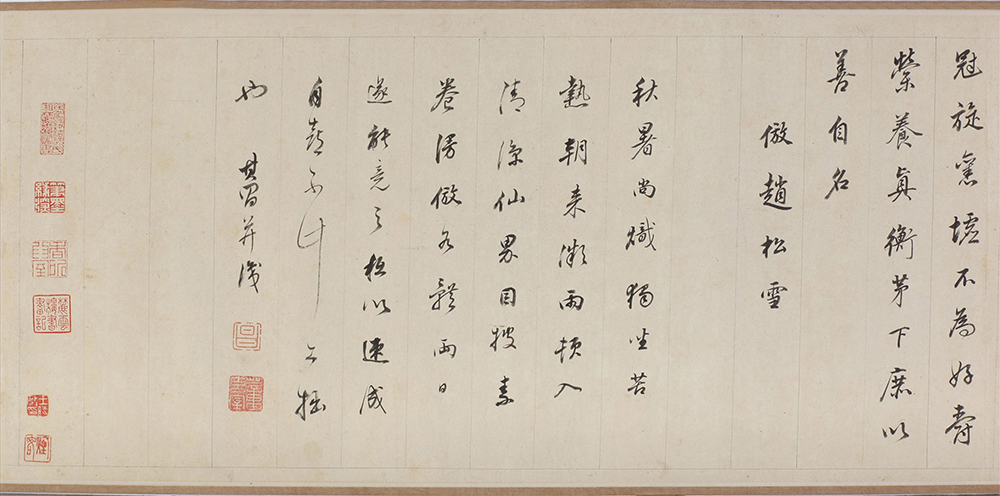 冠旋舊墟不為好爵
縈養真衡茅下庶以
善自名
倣趙松雪
秋暑尚熾獨坐苦
熱朝來微雨頓入
清涼仙界因披素
卷漫倣各體兩日
遂能竟之極以速成
自喜不計工拙
也 其昌并識